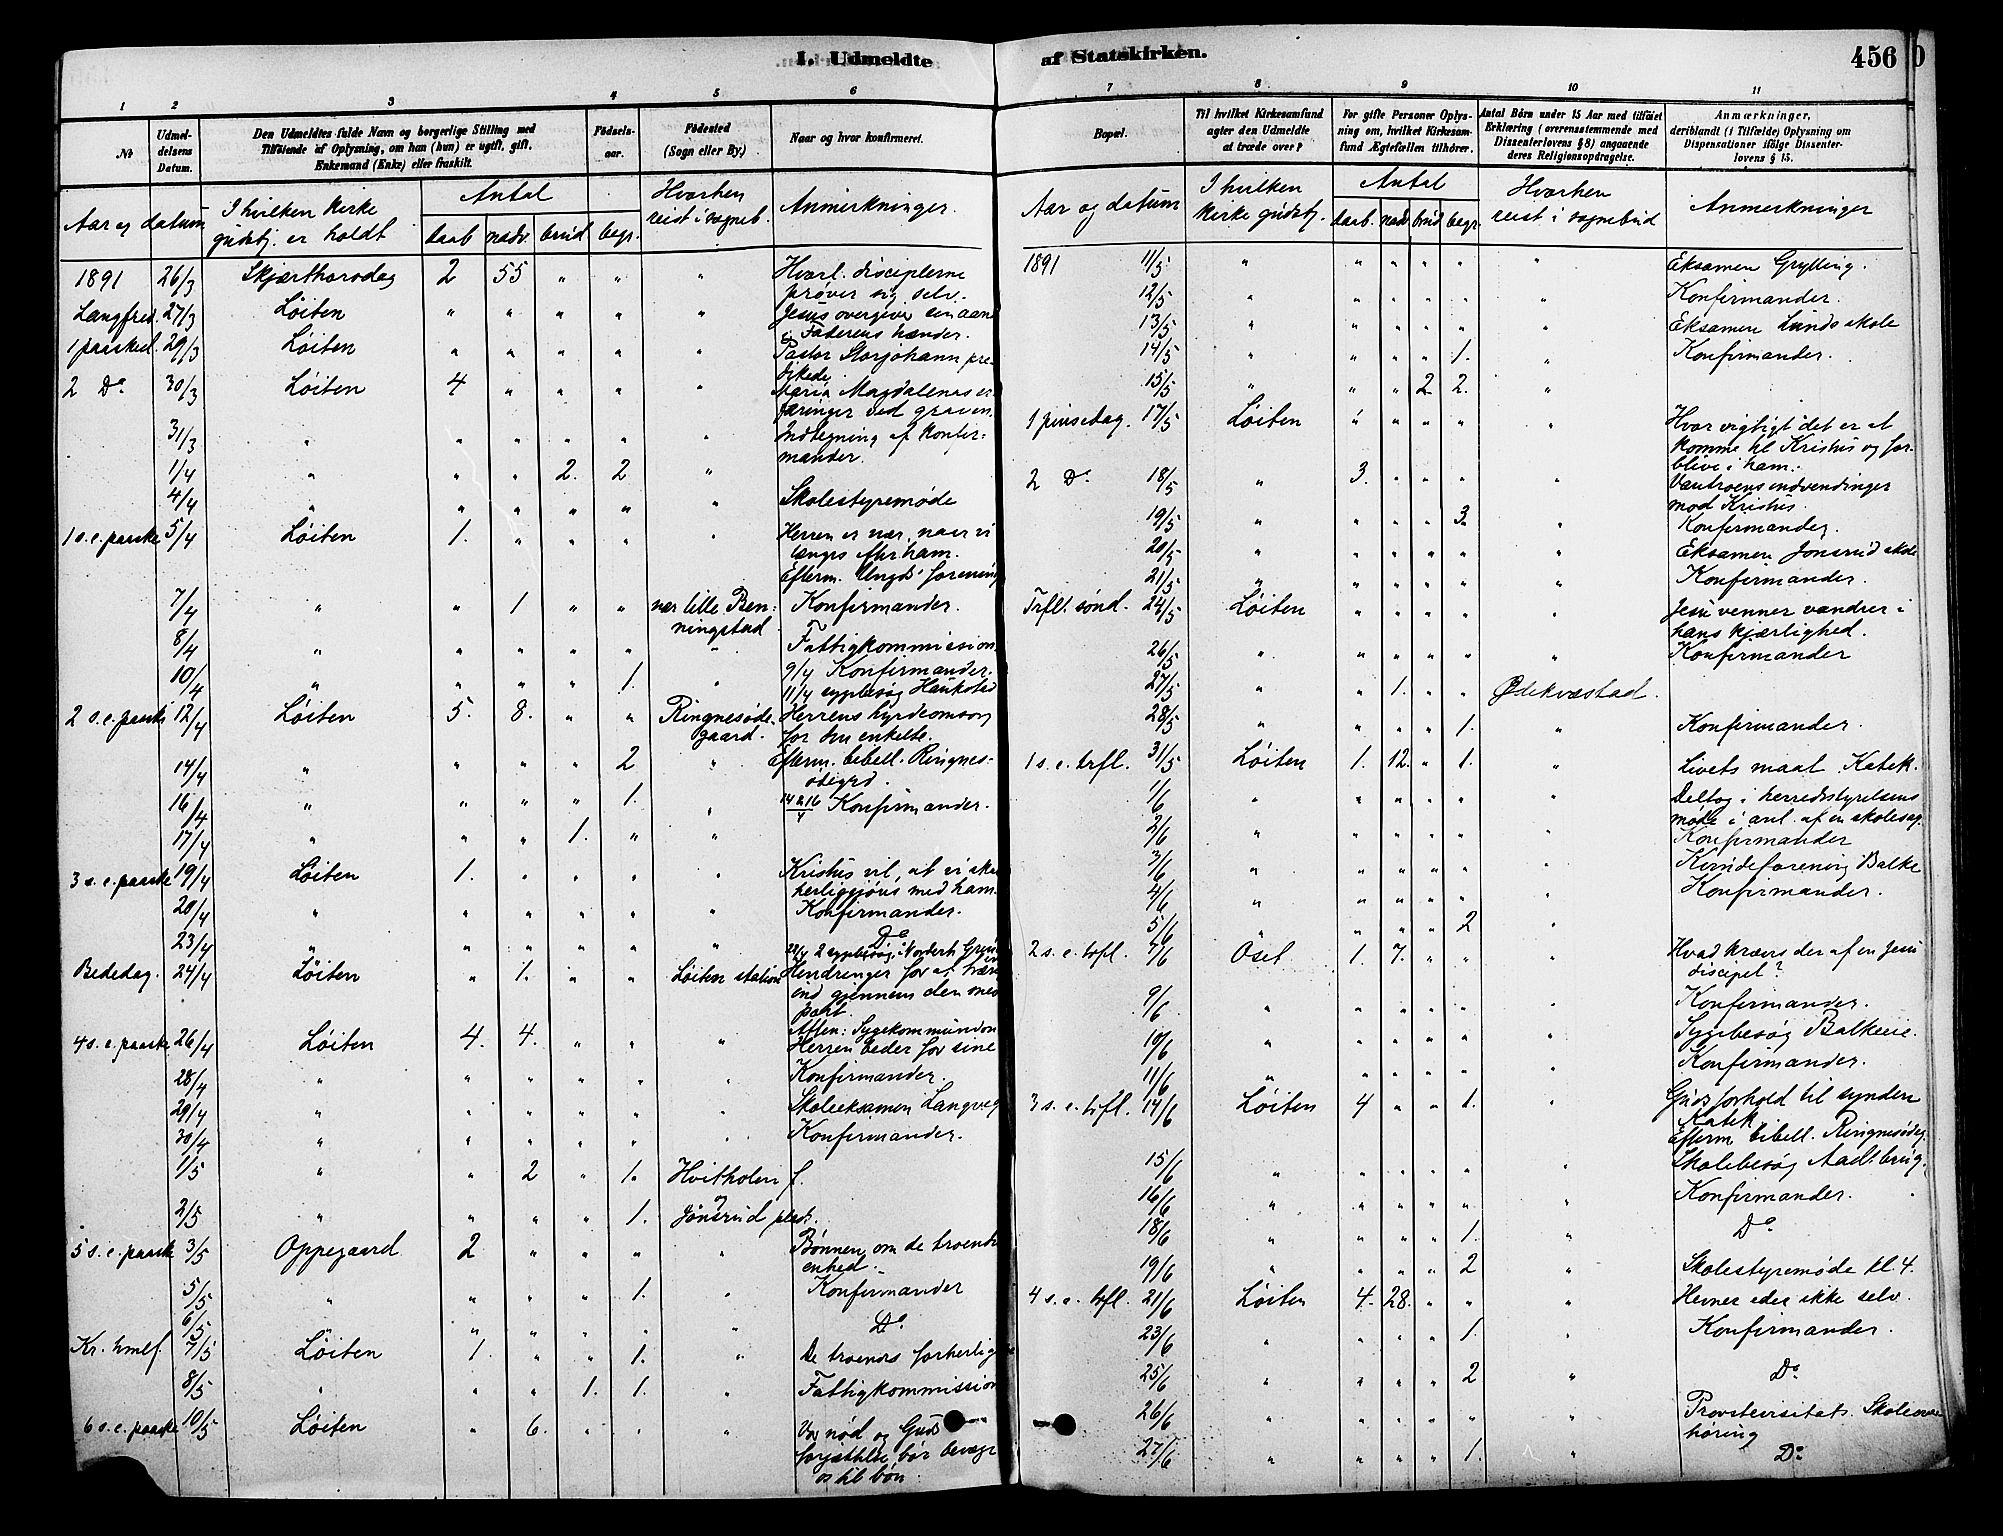 1. Udmeldte
1 2 3 4 5 6
No
Udmel-
delsens
Datum.
Den Udmeldtes fulde Navn og borgerlige Stilling med
Tilføiende af Oplysning, om han (hun) er ugift, gift,
Enkemand (Enke) eller fraskilt.
Fødsels-
aar.
Fødested
(Sogn eller By.)
Naar og hvor konfirmeret.
Aar og datum
I hvilken kirke
gudstj. er holdt
Antal
daab nadv. brud begr.
Hvorhen
reist i sogneb.
Anmerkninger.
1891 26/3 Skjærthorsdag 2 55 " " " Hvorl. disciplerne
prøver sig selv.
Langfred. 27/3 Løiten " " " " " Jesus overgiver sin aand
i Faderens hænder.
1 paasked. 29/3 Løiten " " " " " Pastor Storjohann præ-
dikede.
2 Do 30/3 Løiten 4 " " " " Maria Magdalenas er-
faringer ved graven.
31/3 " " " " " " Indtegning af konfir-
mander.
1/4 " " " 2. 2 "
4/4 " " " " " " Skolestyremøde
1 s. e. paaske 5/4 Løiten 1. " " " " Herren er nær, naar vi
længes efter ham.
Efterm. Ungds' forening
7/4 " " 1 " " nær lille Ben- Konfirmander.
ningstad
8/4 " " " " " " Fattigkommission.
10/4 " " " " 1. " 9/4 Konfirmander.
11/4 sygebesøg Haukstad
2 s. e. paaske 12/4 Løiten 5. 8. " " Ringnesøde- Herrens hyrdeomsorg
gaard. for den enkelte.
14/4 " " " " 2 " Efterm. bibell. Ringnes-
ødegrd.
16/4 " " " " 1. " 14 & 16/4 Konfirmander.
17/4 " " " 1. " "
3 s. e. paaske 19/4 Løiten 1. " " " " Kristus vil, at vi skal
herliggjøres med ham.
20/4 " " " " " " Konfirmander.
23/4 " " " " " " Do
22/4 2 sygebesøg
Bededag. 24/4 Løiten " 1. " " Løiten station Hindringer for at træng
ind gjennem den snevre
port.
4 s. e. paaske 26/4 Løiten 4. 4. " " " Aften: Sygekommunion
Herren beder for sine
28/4 " " " " " " Konfirmander.
29/4 " " " " " " Skoleeksamen Langveg
30/4 " " " " " " Konfirmander.
1/5 " " 2 " 1. Hvitholen f.
og
2/5 " " " " 1. Jønsrud plads.
5 s. e. paaske 3/5 Oppegaard 2 " " " " Bønnen om de troendes
enhed.
5/5 " " " " 1. " Konfirmander
6/5 " " " " " " Do
Kr. hmlf. 7/5 Løiten 1. " " 1. " De troendes forherlig
8/5 " " " 1. 1. " Fattigkommission
6 s. e. paaske 10/5 Løiten " 6. " " " Vor nød og Guds
forjættelse bør bevæge
os til bøn.
af Statskirken.
456
7 8 9 10 11
Bopæl.
Til hvilket Kirkesamfund
agter den Udmeldte
at træde over?
For gifte Personer Oplys-
ning om, hvilket Kirkesam-
fund Ægtefællen tilhører.
Antal Børn under 15 Aar med tilføiet
Erklæring (overensstemmende med
Dissenterlovens § 8) angaaende
deres Religionsopdragelse.
Anmærkninger,
deriblandt (i Tilfælde) Oplysning om
Dispensationer ifølge Dissenter-
lovens § 15.
Aar og datum
I hvilken
kirke gudstj.
Antal
daab. nadv. brud begr.
Hvorhen
reist i sognebud
Anmerkninger
1891 11/5 " " " " " " Eksamen Grylling.
12/5 " " " " " " Konfirmander.
13/5 " " " " " " Eksamen Lunds skole
14/5 " " " " 1. " Konfirmander.
15/5 " " " 2 2. "
1 pinsedag. 17/5 Løiten " " " " " Hvor vigtigt det er at
komme til Kristus og for-
blive i ham.
2 Do 18/5 " 3. " " " " Vantroens indvendinger
mod Kristus.
19/5 " " " " 3. " Konfirmander.
20/5 " " " " " " Eksamen Jønsrud skole
21/5 " " " " " " Konfirmander.
Trflt. sønd. 24/5 Løiten " " " " " Jesu venner vandrer i
hans kjærlighed.
26/5 " " " " " " Konfirmander
27/5 " " 1. " " Ødekvæstad.
28/5 " " " " 1. " Konfirmander.
1 s. e. trfl. 31/5 Løiten 1. 12. " 1. " Livets maal. Katek.
1/6 " " " " " " Deltog i herredsstyrelsens
møde i anl. af en skolesag.
2/6 " " " " " " Konfirmander
3/6 " " " " " " Kvindeforening Balke
4/6 " " " " " " Konfirmander.
5/6 " " " " 2 "
2 s. e. trfl. 7/6 Oset 1. 7. " " " Hvad kræves der af en Jesu
discipel?
9/6 " " " " " " Konfirmander.
10/6 " " " " " " Sygebesøg Balkeeie.
11/6 " " " " " " Konfirmander.
3 s. e. trfl. 14/6 Løiten 4 " " 1. " Guds forhold til synden
Katek.
Efterm. bibell. Ringnesødeg.
15/6 " " " " " " Skolebesøg Aadlsbrug.
16/6 " " " " " " Konfirmander.
18/6 " " " " 1. " Do
19/6 " " " " 2 " Skolestyremøde kl. 4.
4 s. e. trfl. 21/6 Løiten 4. 28. " " " Hevner eder ikke selv.
23/6 " " " " 1. " Konfirmander.
25/6 " " " " 2 " Do
26/6 " " " " " " Provstevisitats. Skoleover
høring
27/6 " " " " 1. " Do